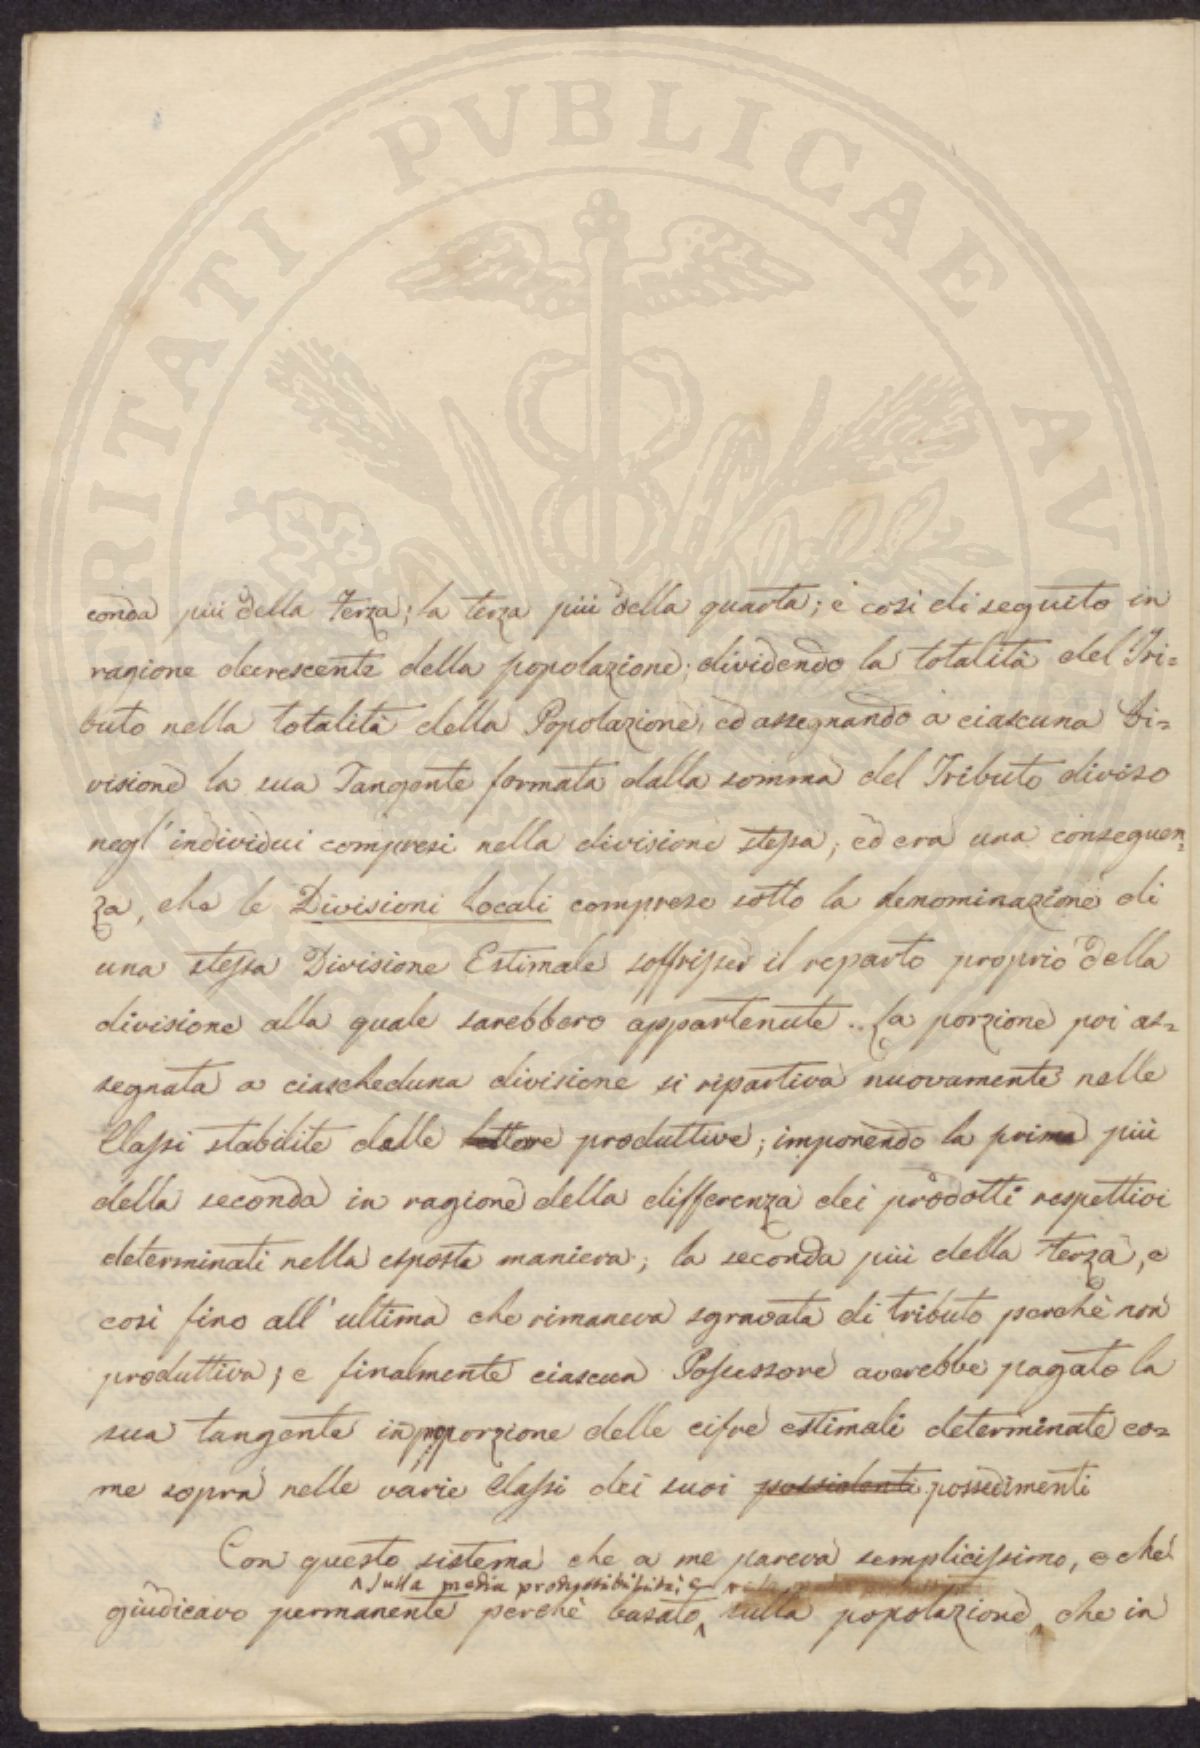 PVBLICAE
RITATI
AVC
conda più della Terza; la terza più della quarta; e così di seguito in
ragione decrescente della popolazione; dividendo la totalità del Tri=
buto nella totalità della Popolazione, ed assegnando a ciascuna Di=
visione la sua Tangente formata dalla somma del Tributo diviso
negl'individui compresi nella divisione stessa; ed era una conseguen=
za, che le Divisioni Locali comprese sotto la denominazione di
una stessa Divisione Estimale soffrisser il reparto proprio della
divisione alla quale sarebbero appartenute.. La porzione poi as=
segnata a ciascheduna divisione si ripartiva nuovamente nelle
Classi stabilite dalle produttive; imponendo la prima più
della seconda in ragione della differenza dei prodotti respettivi
determinati nella esposta maniera; la seconda più della terza, e
così fino all'ultima che rimaneva sgravata di tributo perchè non
produttiva; e finalmente ciascun Possessore averebbe pagato la
sua tangente in proporzione delle cifre estimali determinate co=
me sopra nelle varie Classi dei suoi possidenti possedimenti
Con questo sistema che a me pareva semplicissimo, e che
sulla media
giudicavo permanente perchè basato sulla popolazione, che in